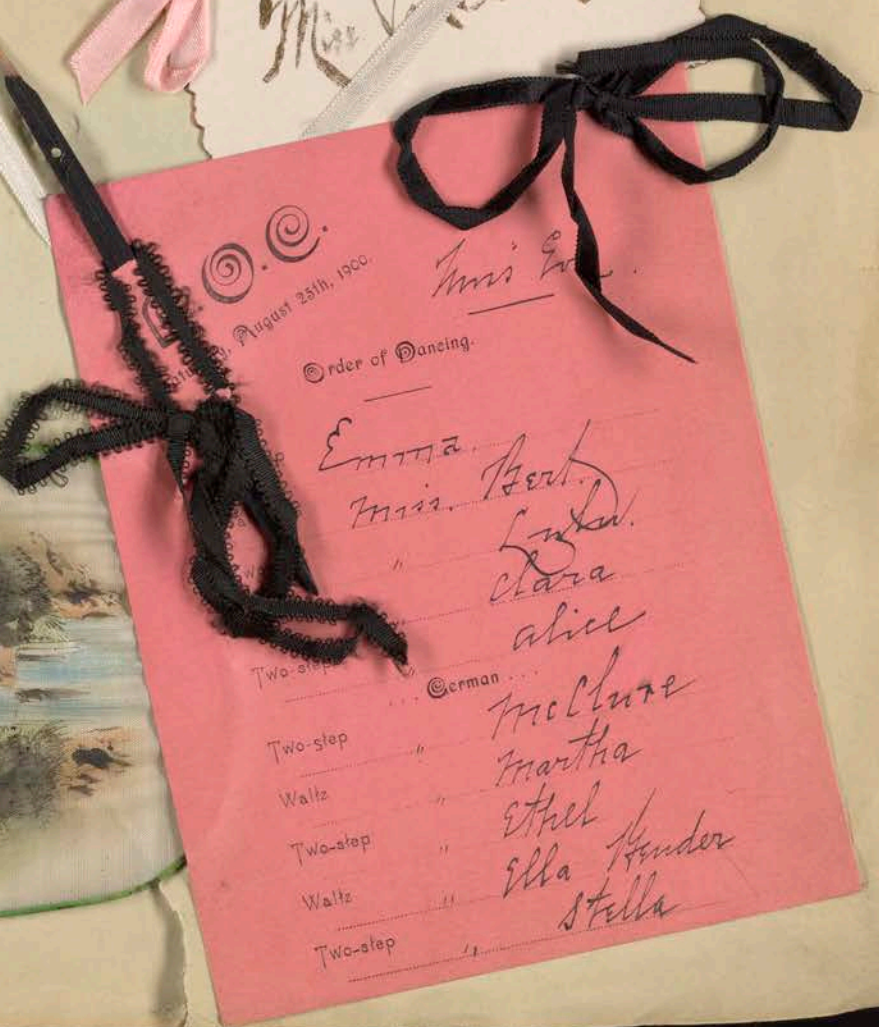 Miss
O.C.
August 25th, 1900.
Order of Dancing.
Emma.
Miss. Bert.
" Lulu.
Clara
Two-step " Alice
... German ...
Two-step " McClure
Waltz " Martha
Two-step " Ethel
Waltz " Ella Hender
Two-step " Stella